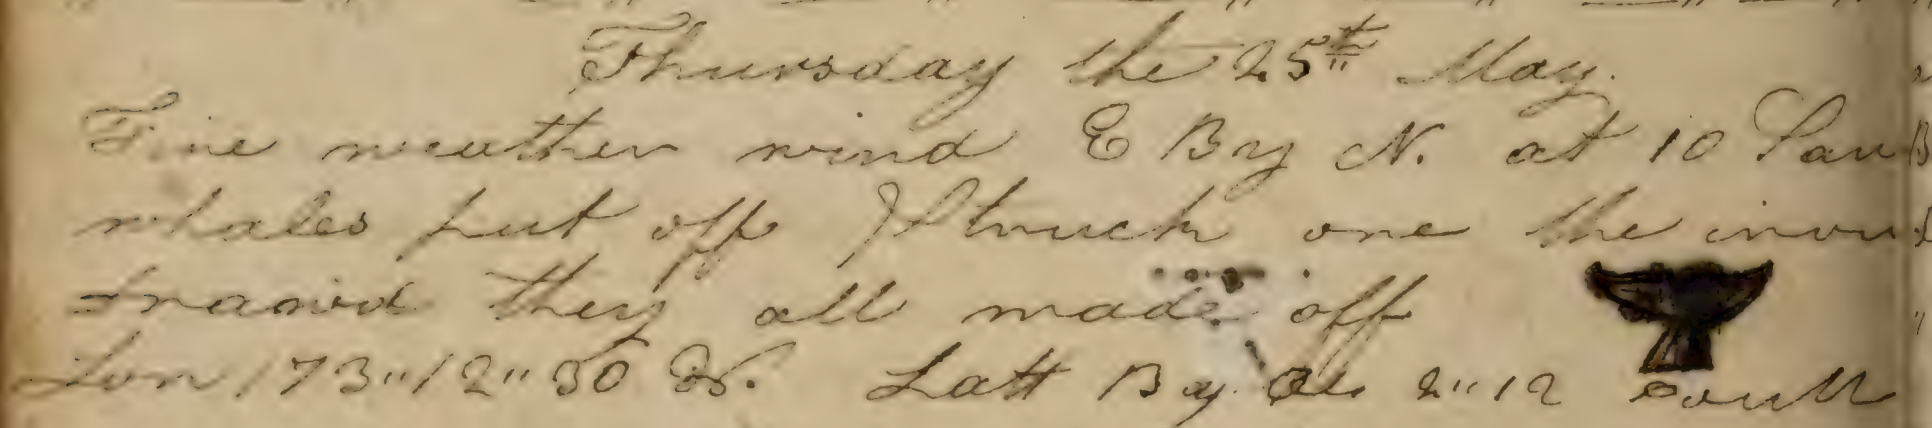 Thursday the 25th May.
Fine weather wind E By N. at 10 Saw
whales put off Struck one the iron
drawd they all made off
Lon 173"12"30 W. Latt By Ob 2"12 South